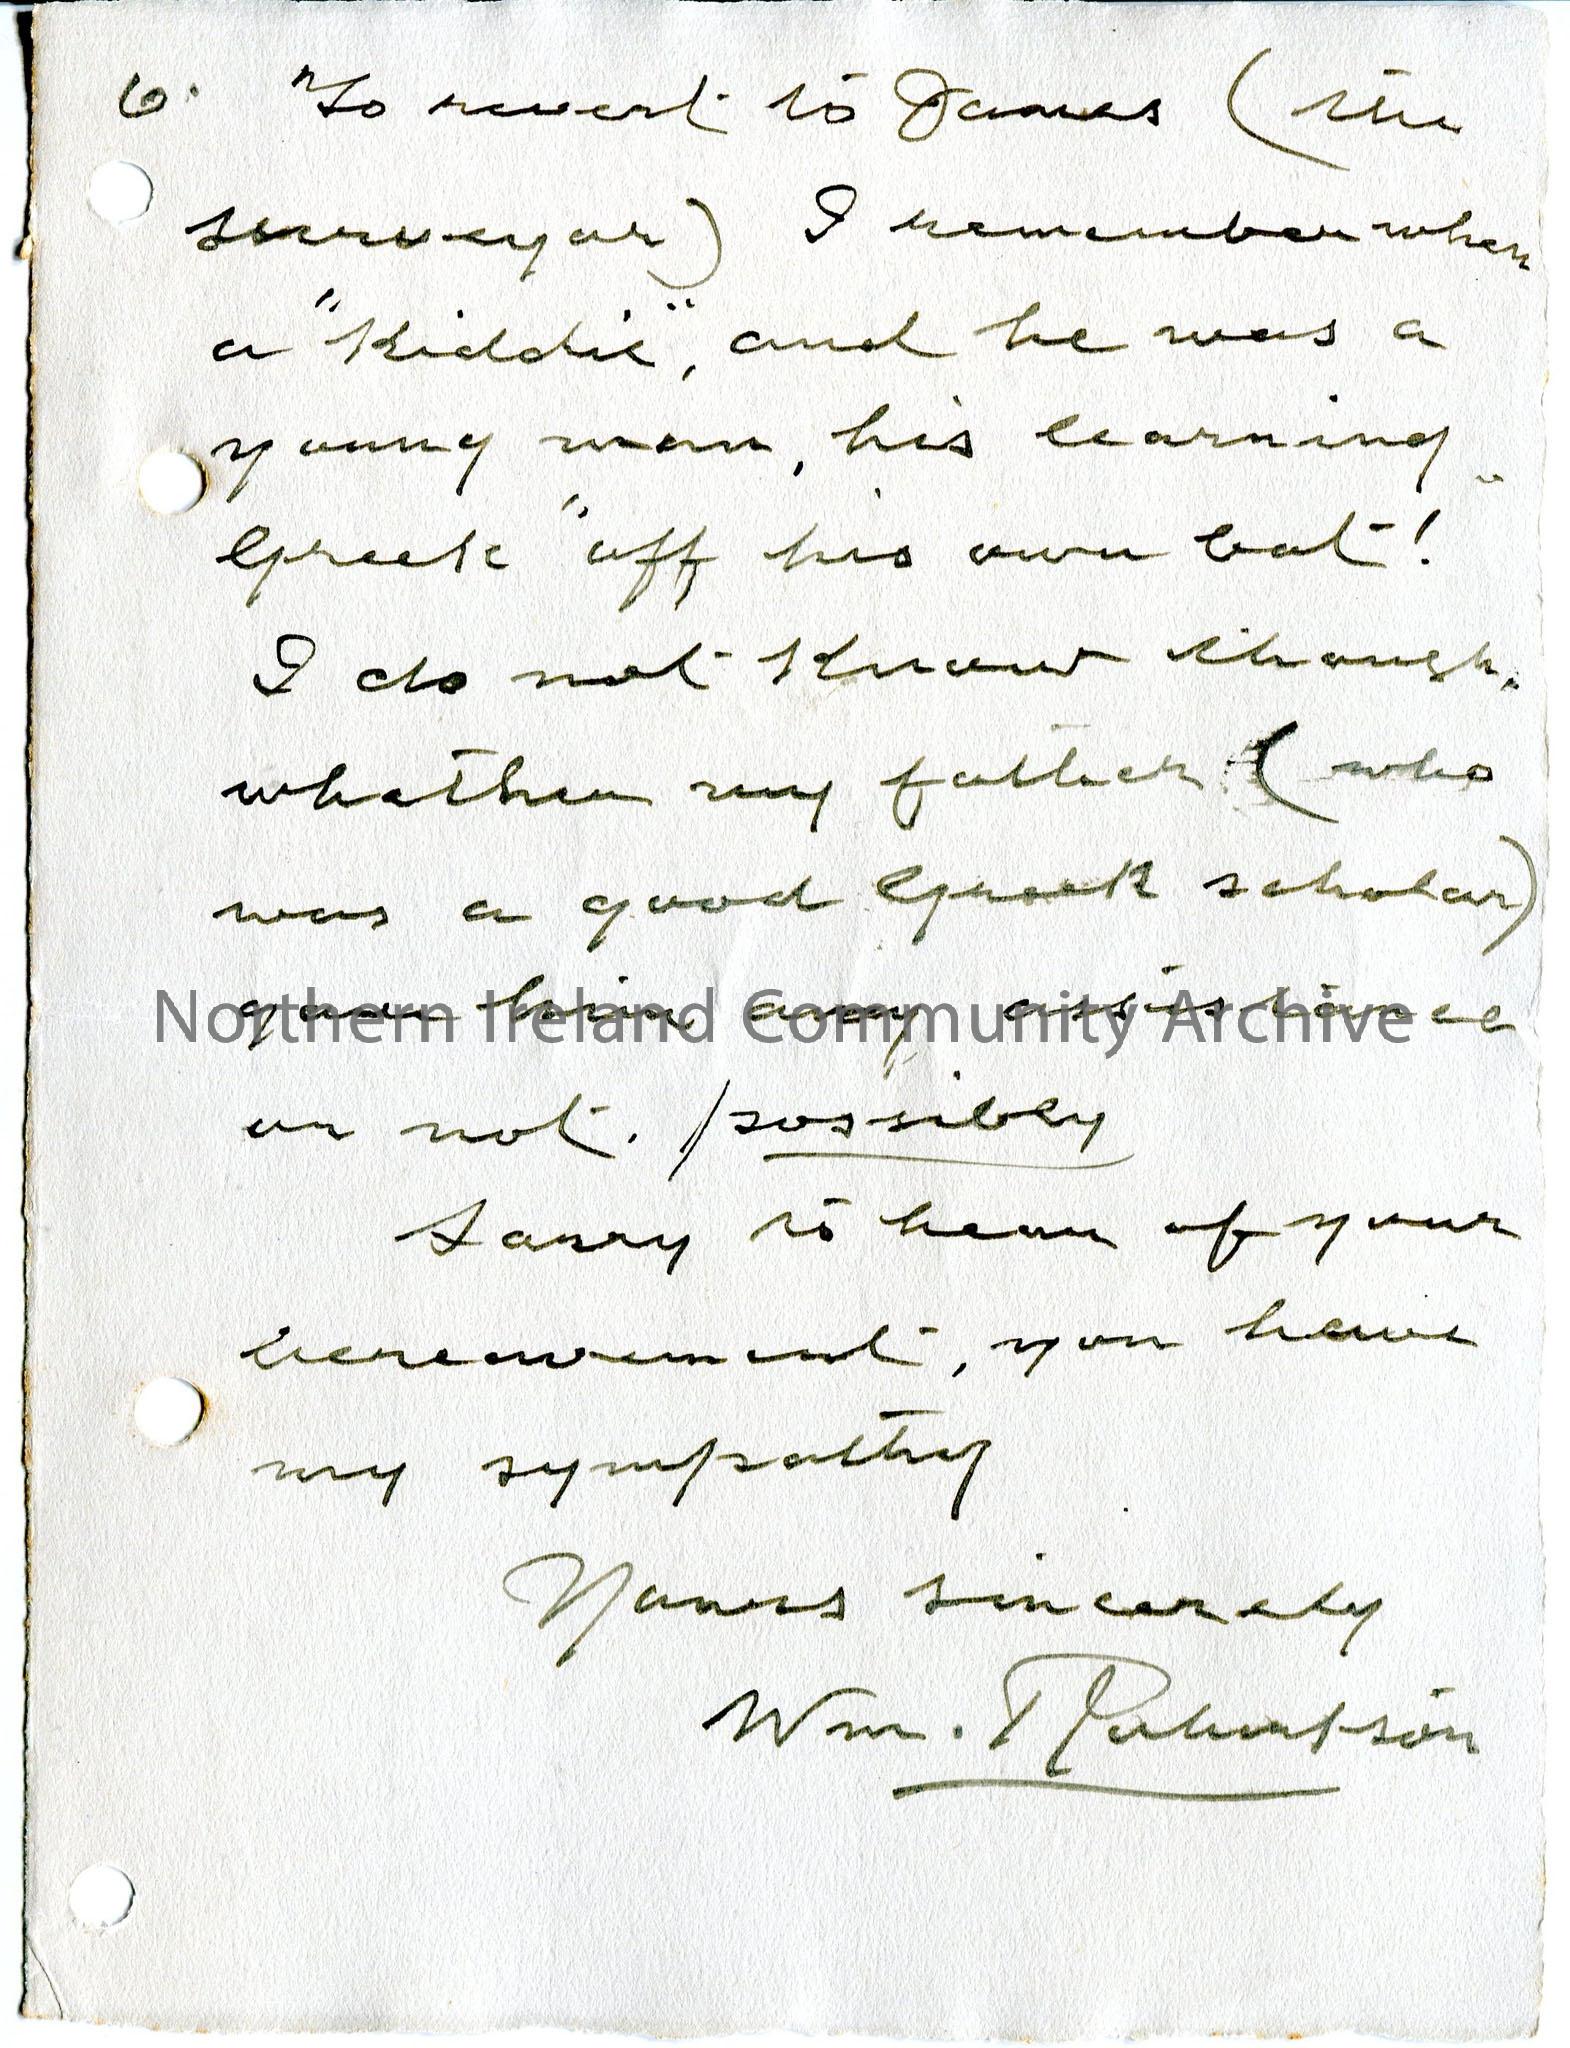 6. "To revert to James (the
surveyor) I remember when
a "Kiddie", and he was a
young man, his learning
Greek "off his own bat!"
I do not know though,
whether my father (who
was a good Greek scholar)
gave him any assistance
Northern Ireland Community Archive
or not. possibly
Sorry to hear of your
bereavement, you have
my sympathy
Yours sincerely
Wm. Robertson